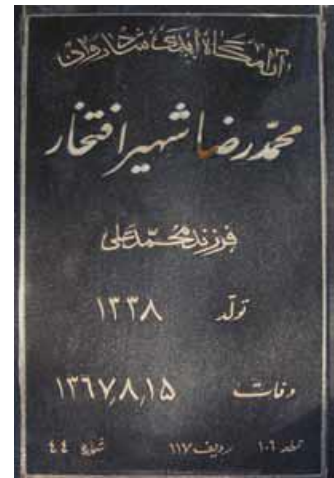 آرامگاه ابدی شادروان
محمد رضا شهیر افتخار
فرزند محمد علی
تولد ۱۳۳۸
وفات ۱۳۶۷٫۸٫۱۵
قطعه ۱۰۶ ردیف ۱۱۷ شماره ۴۴